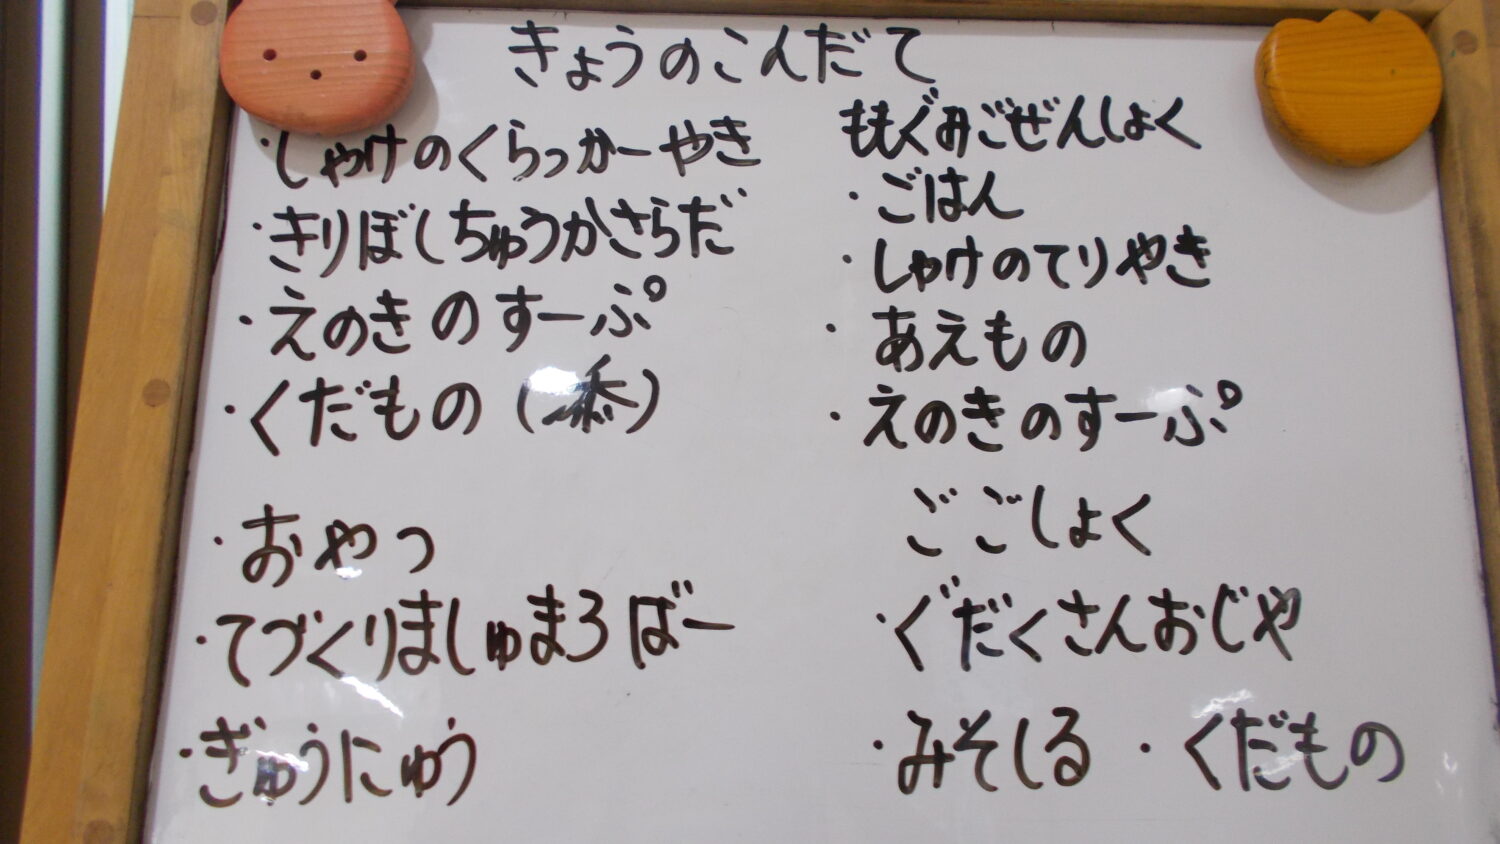 きょうのこんだて
・しゃけのくらっかーやき
・きりぼしちゅうかさらだ
・えのきのすーぷ
・くだもの
・おやつ
・てづくりましゅまろばー
・ぎゅうにゅう
ももぐみごぜんしょく
・ごはん
・しゃけのてりやき
・あえもの
・えのきのすーぷ
ごごしょく
・ぐだくさんおじや
・みそしる ・くだもの